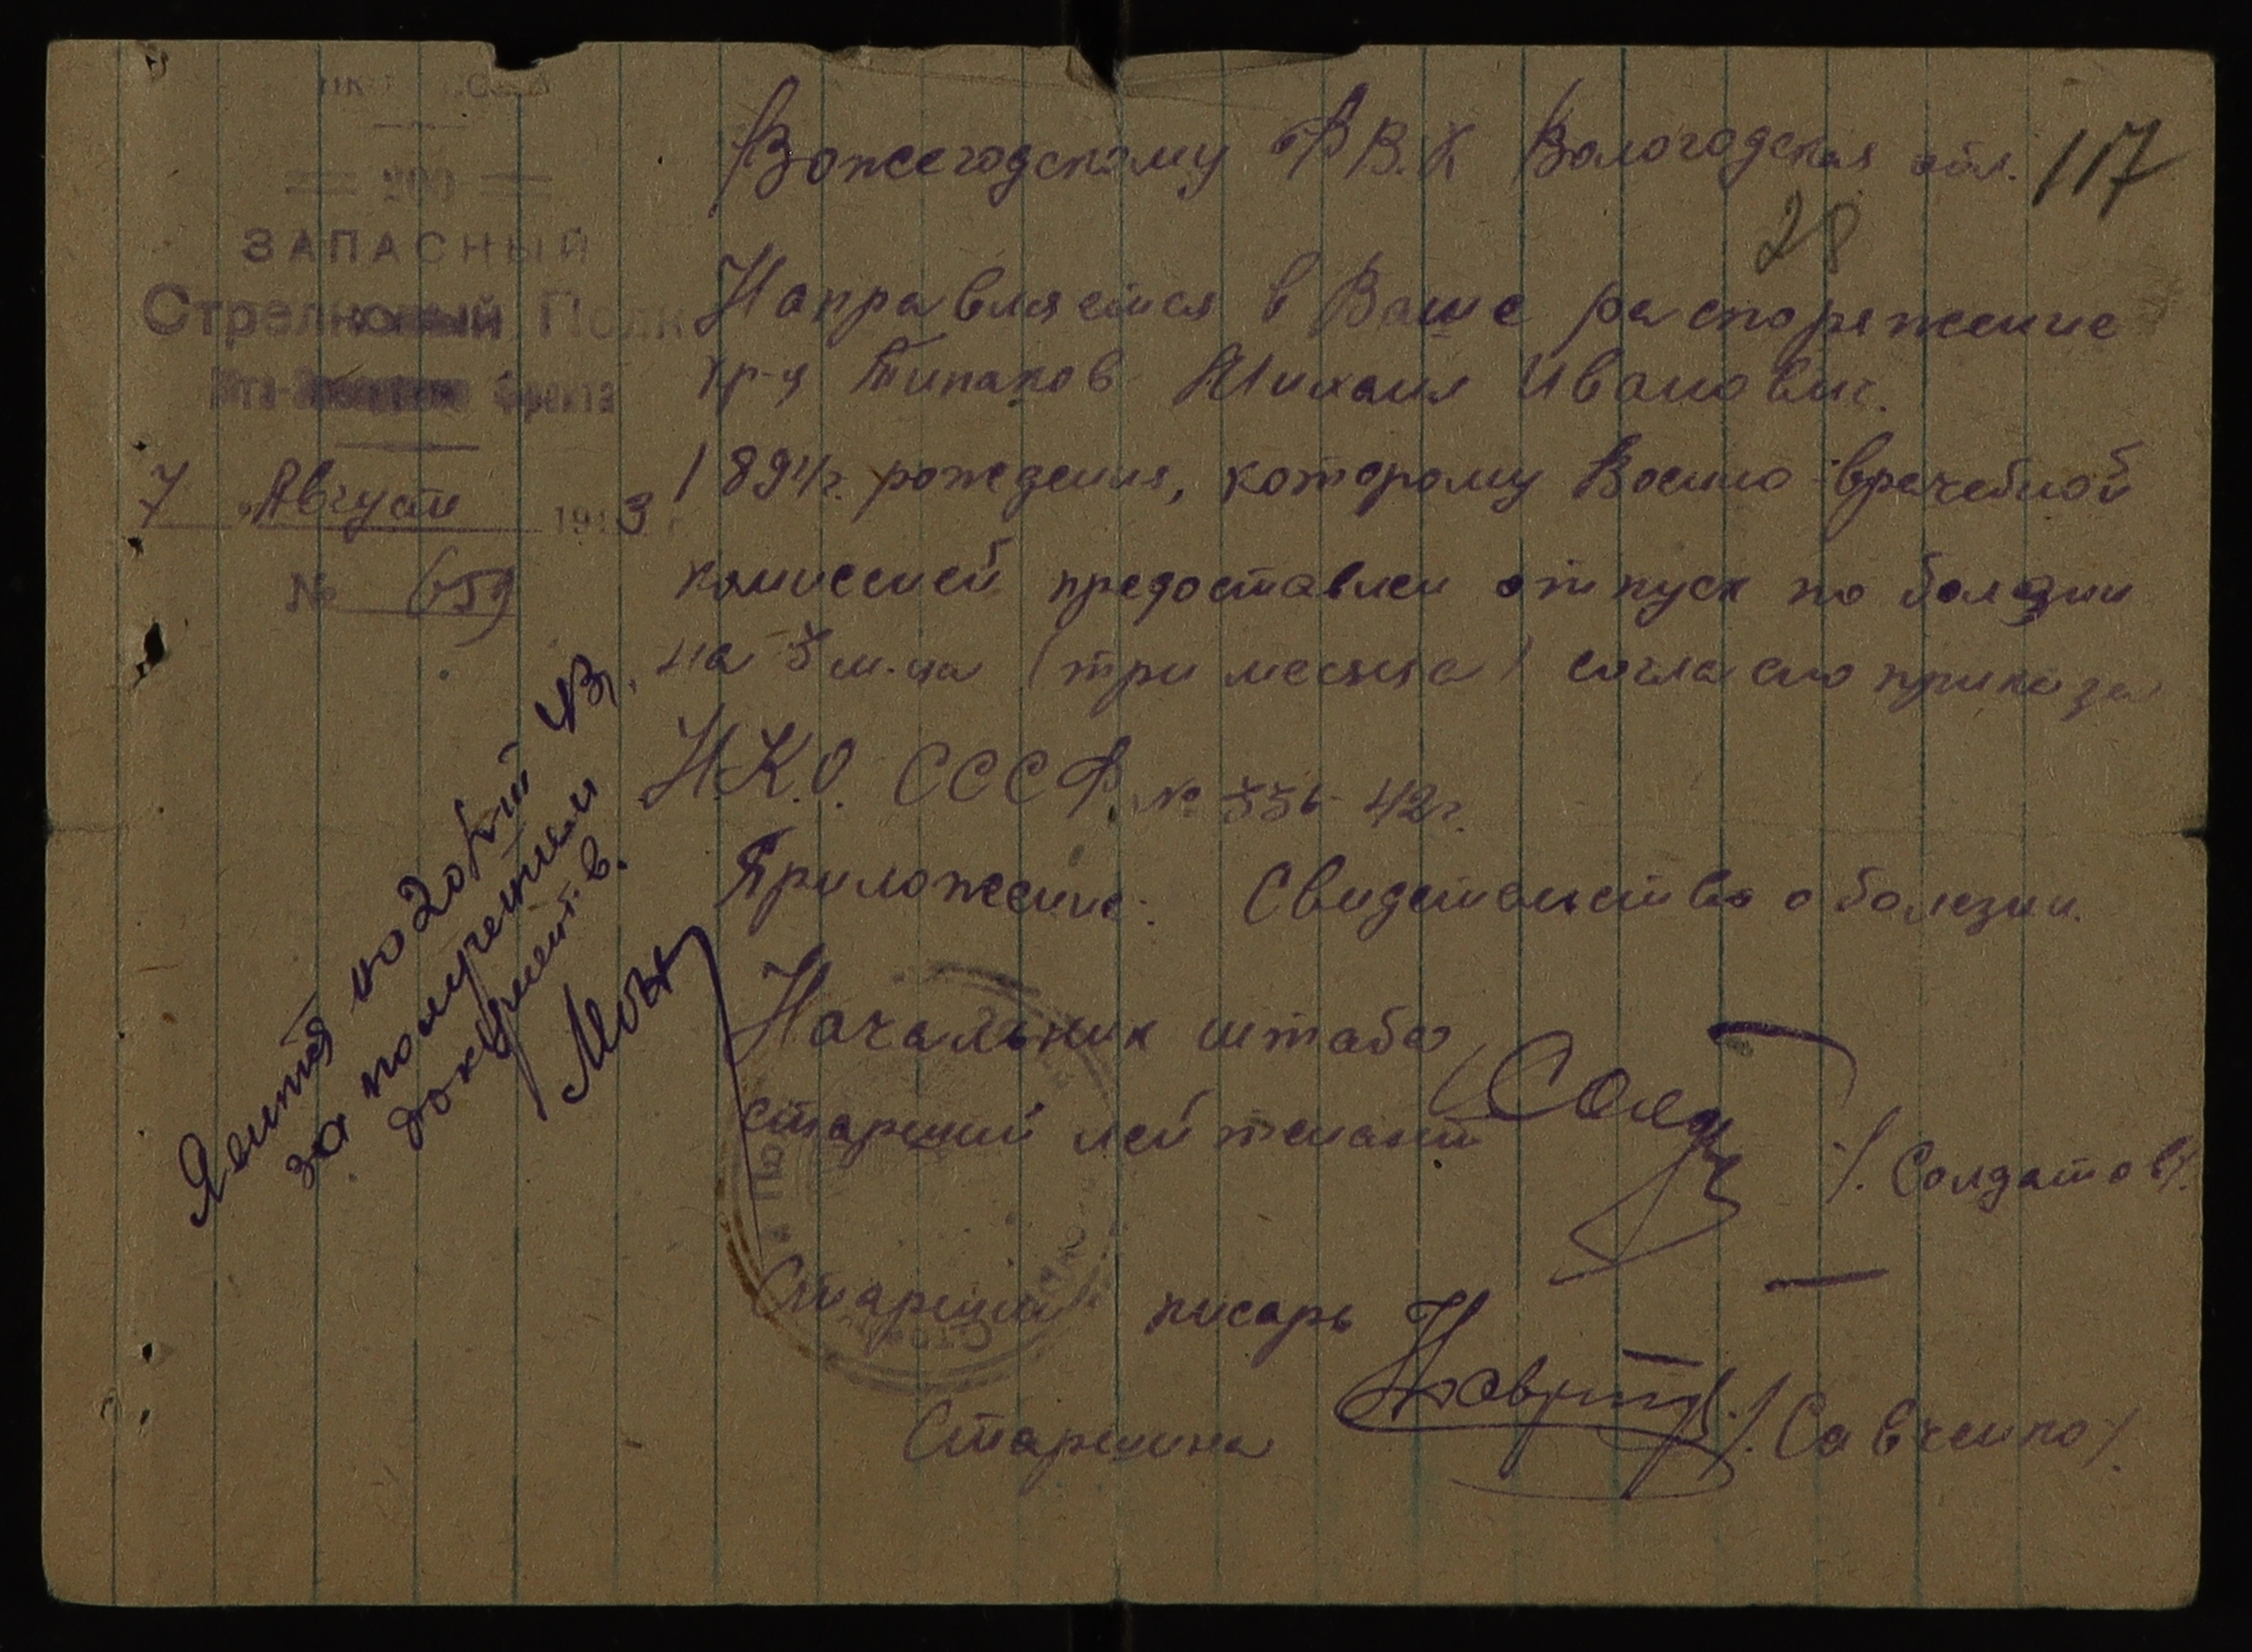 200
ЗАПАСНЫЙ
Стрелковый Полк
Фронта
7 Август 1943
№ 659
Вожегодскому РВ.К Вологодская обл.
117
28
Направляется в Ваше распоряжение
кр-ц Типаков Михаил Иванович.
1894г. рождения, которому Военно-врачебной
комиссией предоставлен отпуск по болезни
на 3 м-ца (три месяца) согласно приказа
Н.К.О. СССР. № 336-42г.
Приложение: Свидетельство о болезни.
Начальник штаба
старший лейтенант /. Солдатов/.
Старший писарь
Старшина /. Савченко/.
43г.
за получением
документ.в.